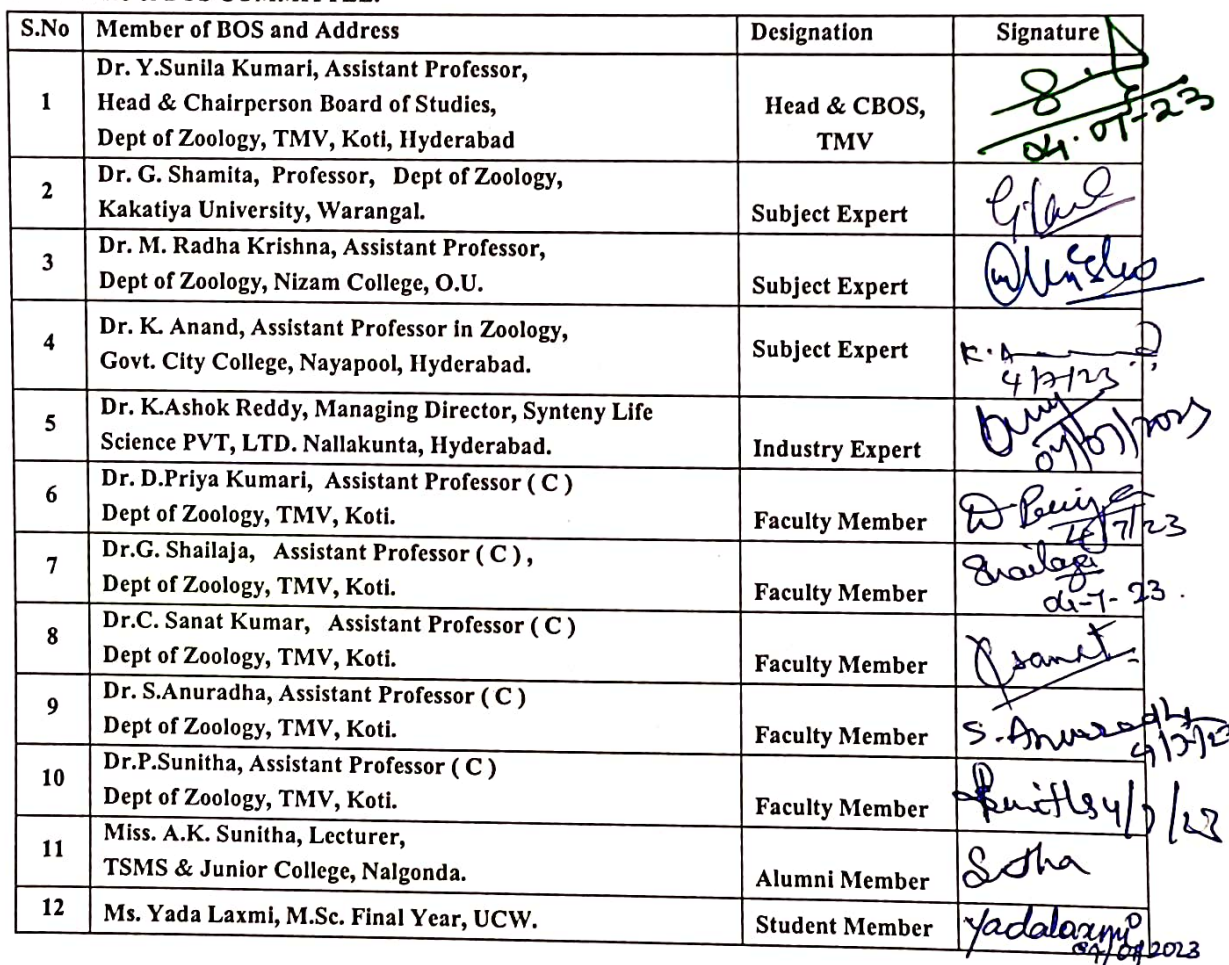 BOS COMMITTEE:
S.No Member of BOS and Address Designation Signature
1 Dr. Y.Sunila Kumari, Assistant Professor,
Head & Chairperson Board of Studies,
Dept of Zoology, TMV, Koti, Hyderabad
Head & CBOS,
TMV
04-07-23
2 Dr. G. Shamita, Professor, Dept of Zoology,
Kakatiya University, Warangal.
Subject Expert
3 Dr. M. Radha Krishna, Assistant Professor,
Dept of Zoology, Nizam College, O.U.
Subject Expert
4 Dr. K. Anand, Assistant Professor in Zoology,
Govt. City College, Nayapool, Hyderabad.
Subject Expert
K. A
4/7/23
5 Dr. K.Ashok Reddy, Managing Director, Synteny Life
Science PVT, LTD. Nallakunta, Hyderabad.
Industry Expert
04/07/2023
6 Dr. D.Priya Kumari, Assistant Professor ( C )
Dept of Zoology, TMV, Koti.
Faculty Member
4/7/23
7 Dr.G. Shailaja, Assistant Professor ( C ),
Dept of Zoology, TMV, Koti.
Faculty Member
Shailaja
04-7-23.
8 Dr.C. Sanat Kumar, Assistant Professor ( C )
Dept of Zoology, TMV, Koti.
Faculty Member
9 Dr. S.Anuradha, Assistant Professor ( C )
Dept of Zoology, TMV, Koti.
Faculty Member
S. Anuradha
4/7/23
10 Dr.P.Sunitha, Assistant Professor ( C )
Dept of Zoology, TMV, Koti.
Faculty Member
4/7/23
11 Miss. A.K. Sunitha, Lecturer,
TSMS & Junior College, Nalgonda.
Alumni Member
12 Ms. Yada Laxmi, M.Sc. Final Year, UCW.
Student Member
Yadalaxmi
04/07/2023